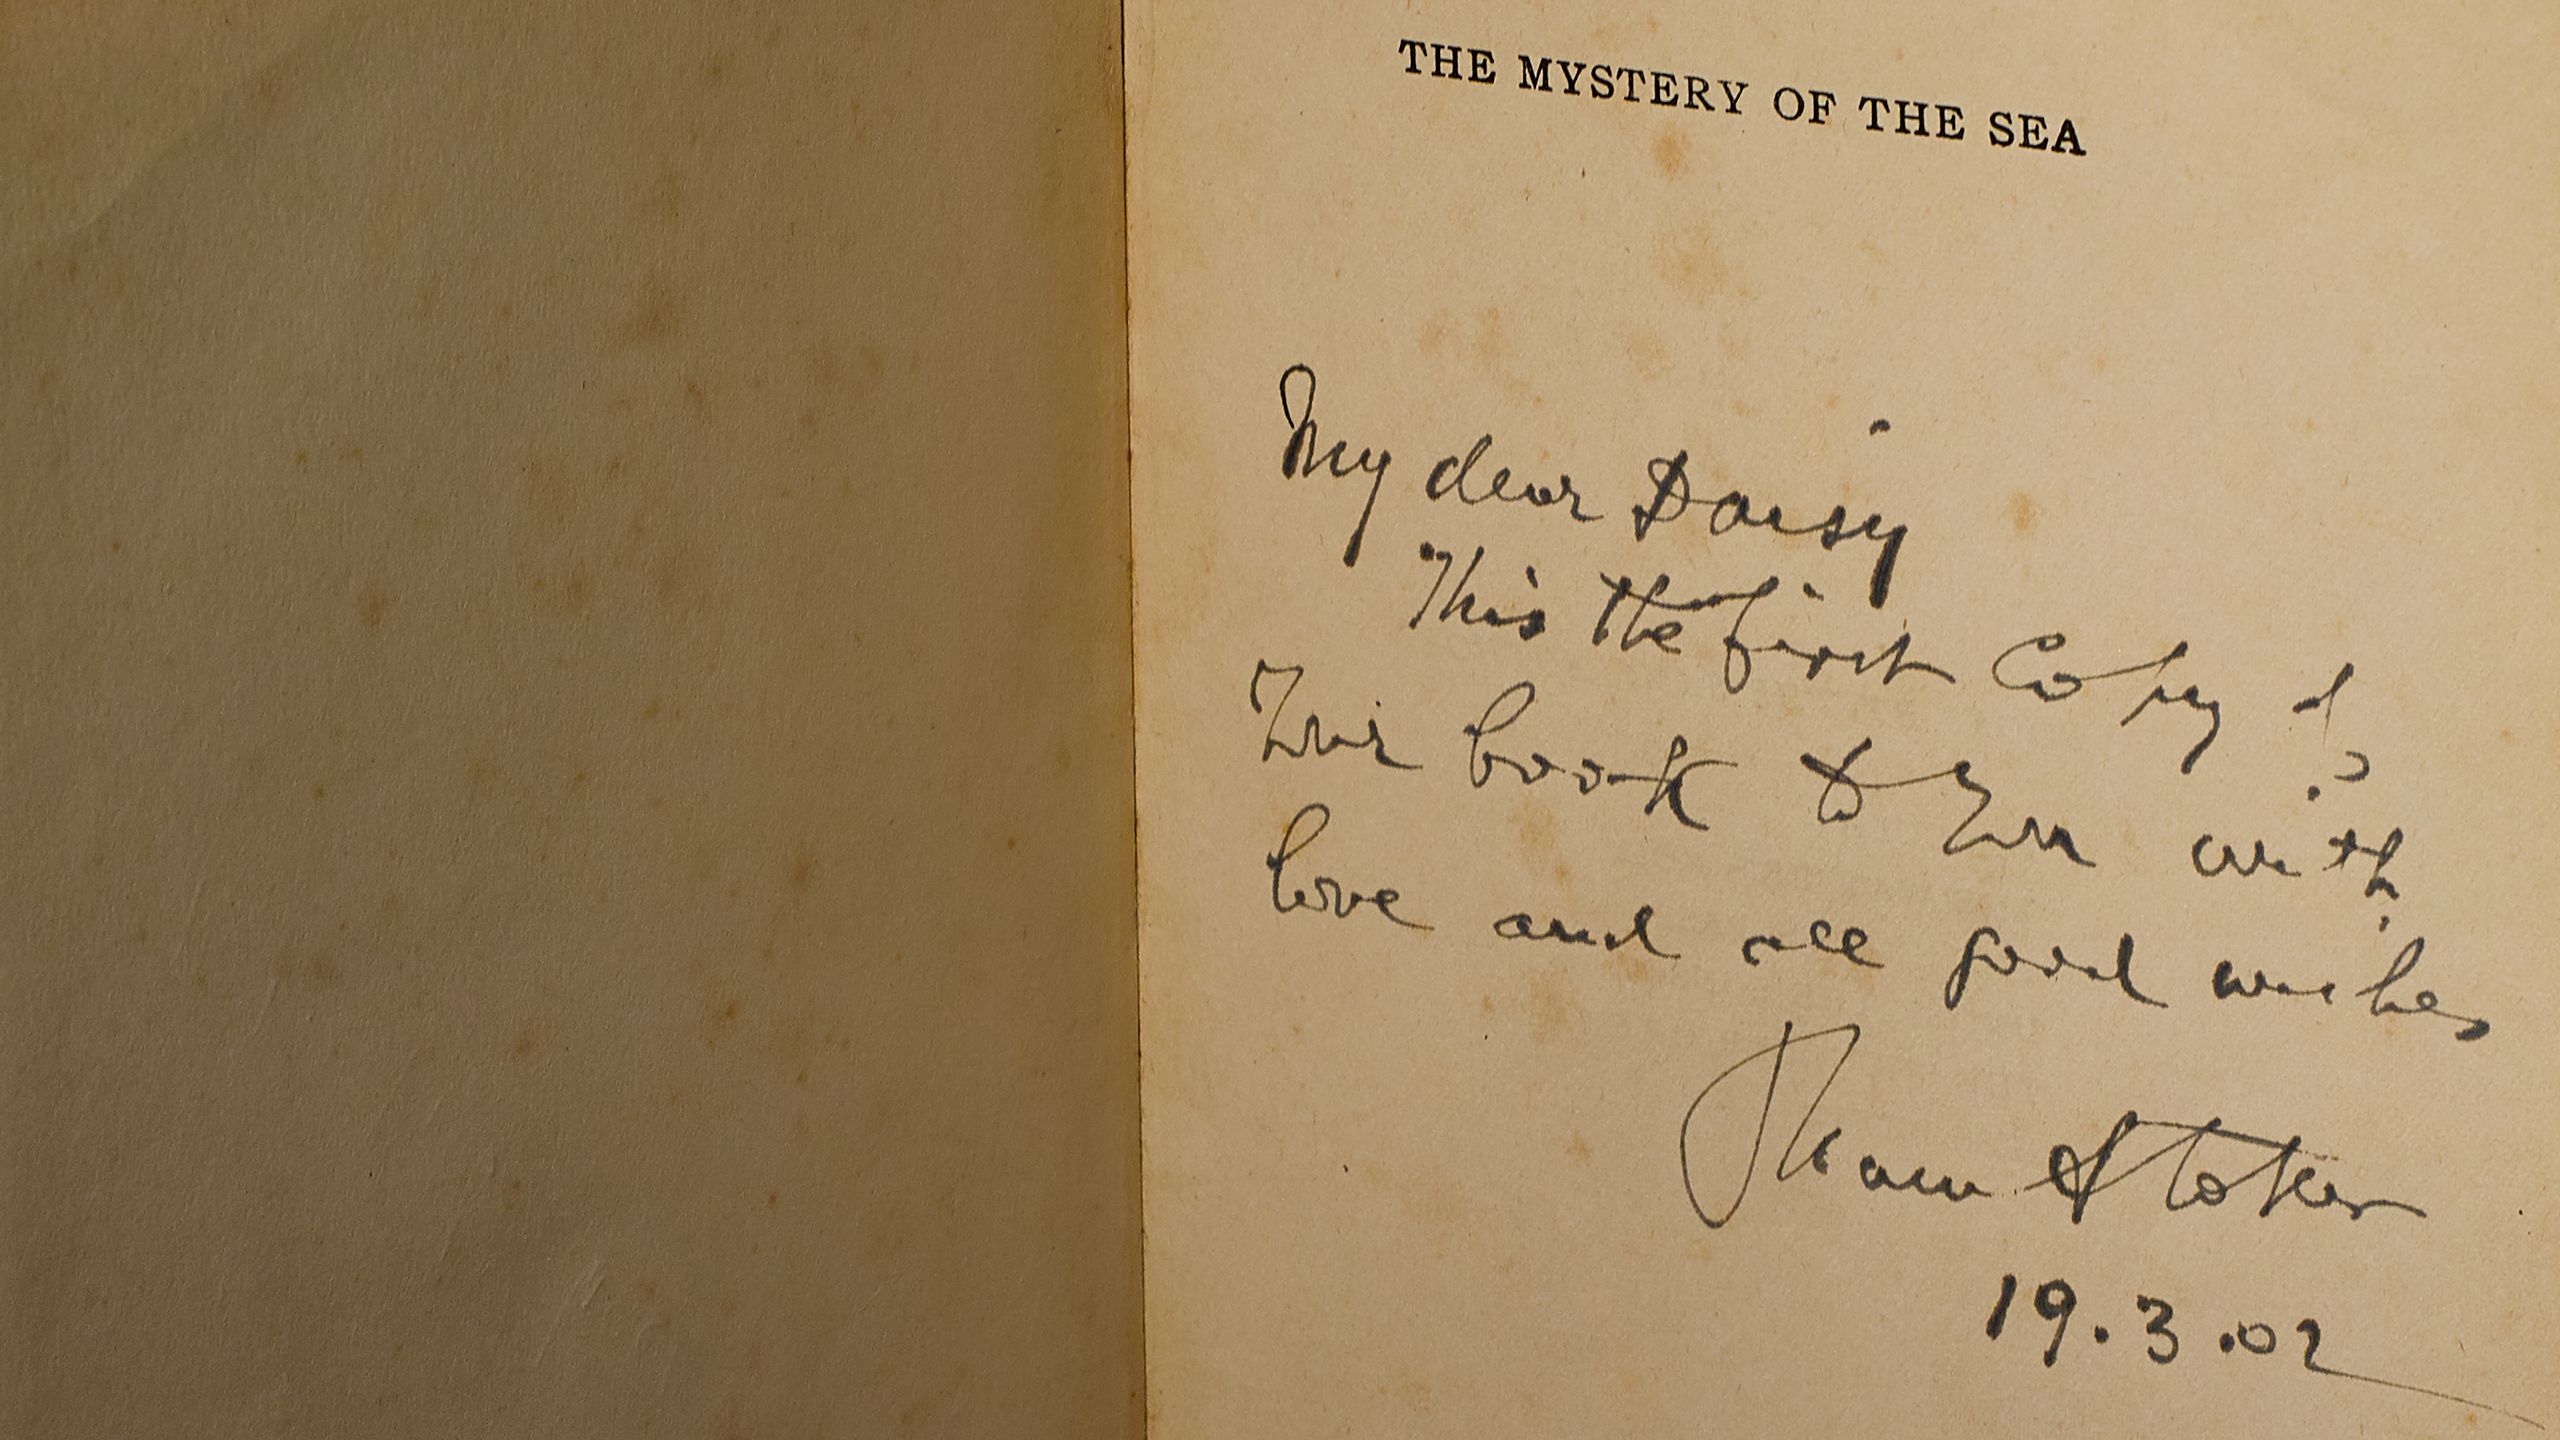 THE MYSTERY OF THE SEA
My dear Daisy
This the first Copy of
Your book to You with
love and all good wishes
Bram Stoker
19.3.02